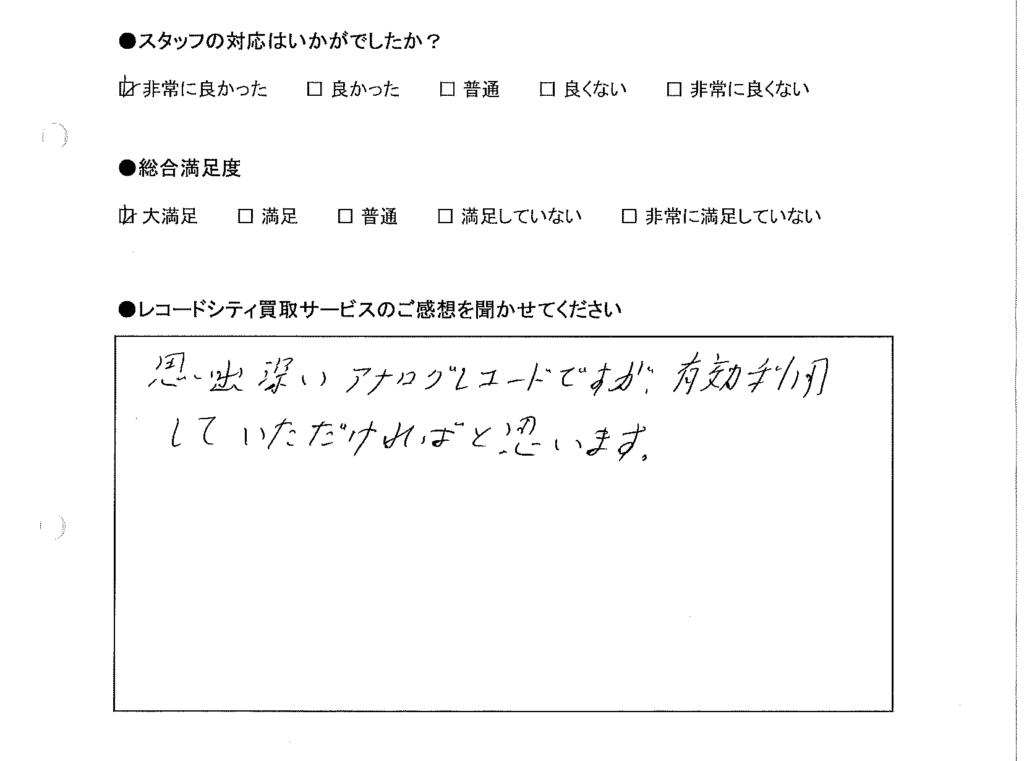 ●スタッフの対応はいかがでしたか？
☑ 非常に良かった □ 良かった □ 普通 □ 良くない □ 非常に良くない
●総合満足度
☑ 大満足 □ 満足 □ 普通 □ 満足していない □ 非常に満足していない
●レコードシティ買取サービスのご感想を聞かせてください
思い出深いアナログレコードですが、有効利用
していただければと思います。